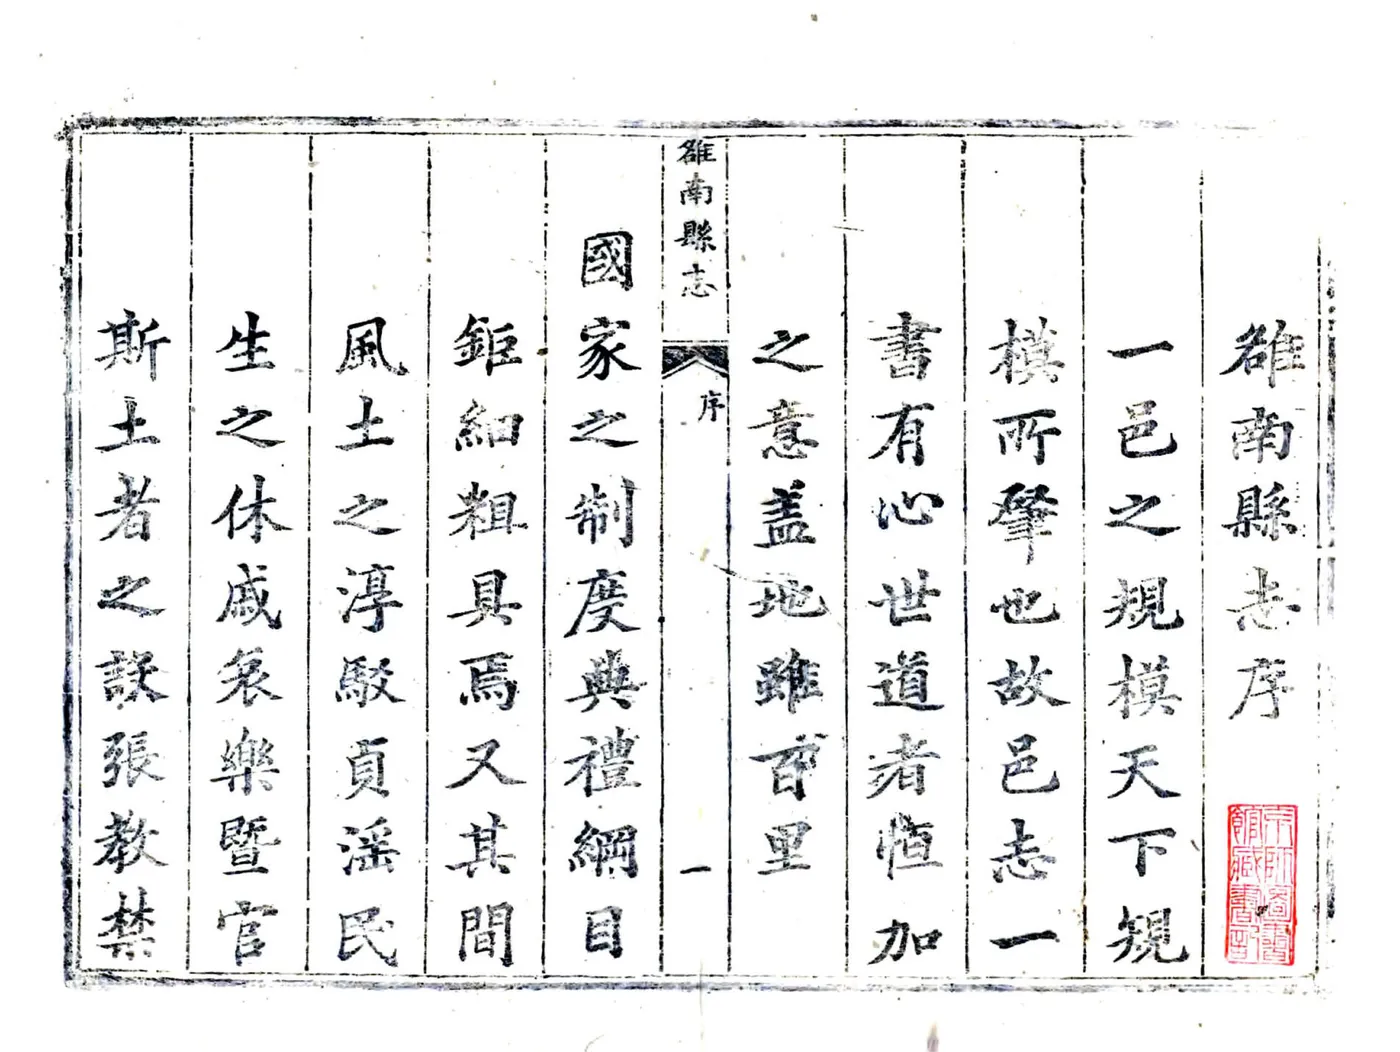 雒南縣志序
一邑之規模天下規
模所肇也故邑志一
書有心世道者恒加
之意盖地雖百里
雒南縣志
序
一
國家之制度典禮綱目
鉅細粗具焉又其間
風土之淳駁貞滛民
生之休戚哀樂暨官
斯土者之張教禁
京師圖書館藏書記